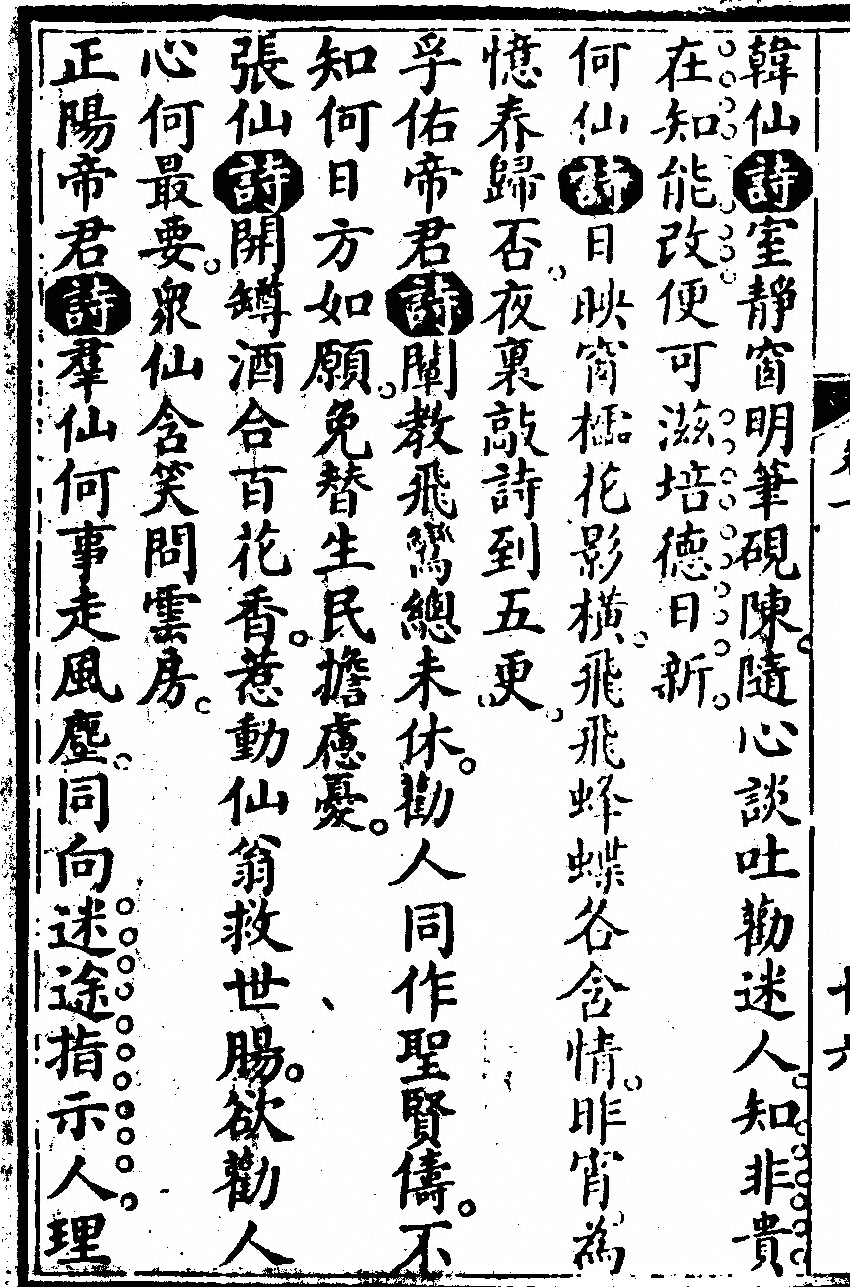 韓仙詩室靜窗明筆硯陳。隨心談吐勸迷人。知非貴
在知能改便可滋培德日新。
何仙詩日映窗櫺花影橫。飛飛蜂蝶各含情。昨宵為
憶春歸否。夜裏敲詩到五更。
孚佑帝君詩闡教飛鸞總未休。勸人同作聖賢儔。不
知何日方如願。免替生民擔慮憂。
張仙詩開罇酒合百花香。惹動仙翁救世腸。欲勸人
心何最要。眾仙含笑問雲房。
正陽帝君詩羣仙何事走風塵。同向迷途指示人。理
十六